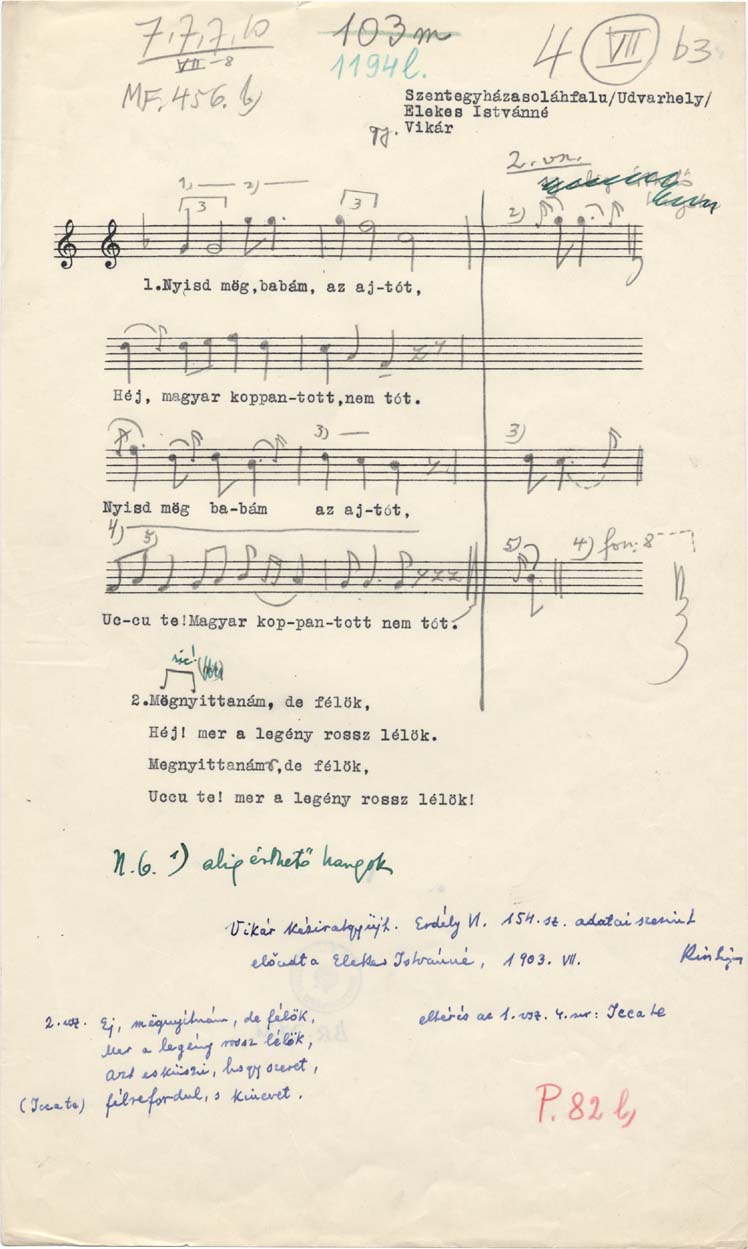 7, 7, 7, 10
VII-8
MF. 456. b)
103m
1194 l.
4 VII b3
Szentegyházasoláhfalu/Udvarhely/
Elekes Istvánné
gy. Vikár
2. vsz.
1) 2)
3 3
2)
1.Nyisd mëg,babám, az aj-tót,
Héj, magyar koppan-tott,nem tót.
3) 3)
Nyisd mëg ba-bám az aj-tót,
4)
5) 5) 4) fon: 8
Uc-cu te!Magyar kop-pan-tott nem tót.
sic!
2.Mëgnyittanám, de félök,
Héj! mer a legény rossz lélök.
Megnyittanám,de félök,
Uccu te! mer a legény rossz lélök!
N.B. 1) alig érthető hangok
Vikár kéziratgyűjt. Erdély VI. 154. sz. adatai szerint
előadta Elekes Istvánné, 1903. VII.
2. vsz. Ej, mëgnyitnám, de félök,
Mer a legény rossz lélök,
Azt esküszi, hogy szeret,
(Icca te) félrefordul, s kinevet.
eltérés az 1. vsz. 4. sor: Icca te
P. 82 b)